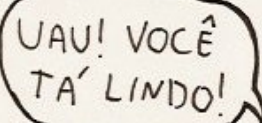 UAU! VOCÊ
TÁ LINDO!